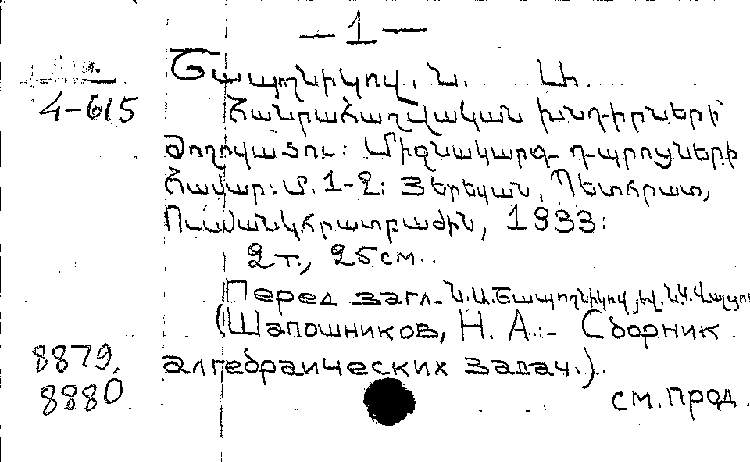 — 1 —
Շապոշնիկով, Ն. Ա.
4-615
Հանրահաշվական խնդիրների
ժողովածու: Միջնակարգ դպրոցների
համար: Մ. 1-2: Յերեվան, Պետհրատ,
Ուսմանկհրատբաժին, 1933:
2 т., 25 см.
Перед загл. Ն.Ա. Շապոշնիկով, և Ն.Կ.
(Шапошников, Н. А. - Сборник
8879, алгебраических задач.).
8880 см. прод.